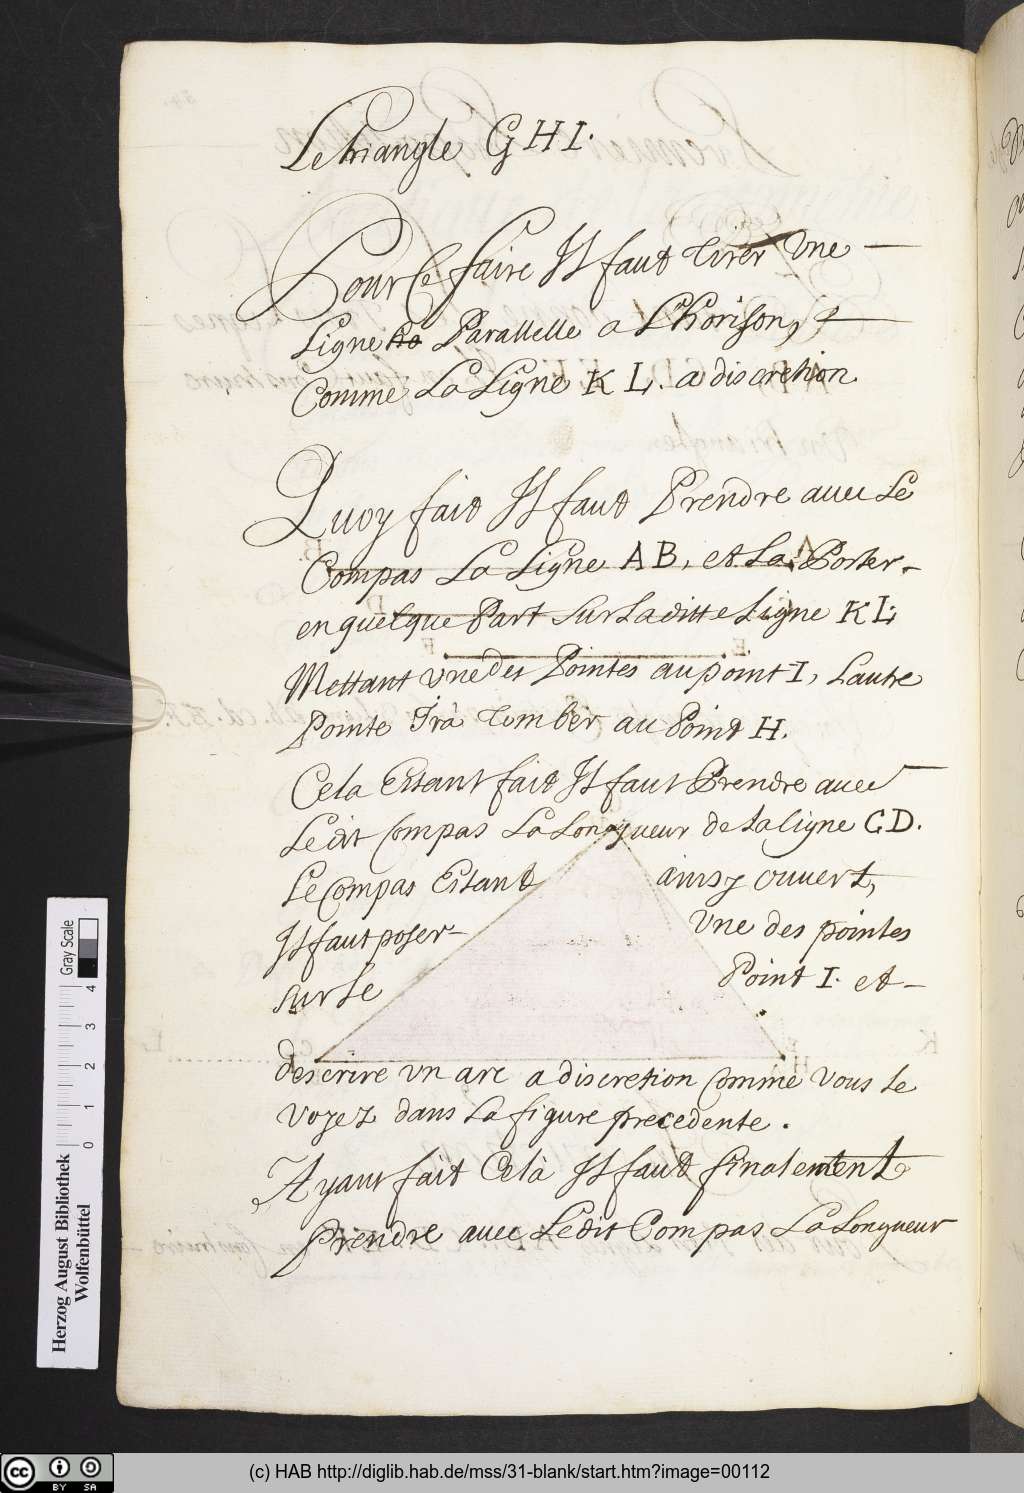 Le triangle G H I.
Pour Ce faire Il faut tirer Vne
Ligne Parallelle a L'Horison,
Comme La Ligne K L. a discretion
Quoy fait Il faut Prendre auec Le
Compas La Ligne A B, et La Porter
en quelque Part Sur La ditte Ligne K L;
Mettant vne des Pointes au point I, Lautre
Pointe Irà tomber au Point H.
Cela Estant fait Il faut Prendre auec
Le dit Compas La Longueur de La ligne C D.
Le Compas Estant ainsy ouuert,
Il faut poser Vne des pointes
sur Le Point I. et
descrire vn arc a discretion Comme Vous Le
Voyez dans La figure precedente.
Ayant fait Celà Il faut finalement
Prendre auec Le dit Compas La Longueur
Herzog August Bibliothek
Wolfenbüttel
Gray Scale
0 1 2 3 4
cc BY SA
(c) HAB http://diglib.hab.de/mss/31-blank/start.htm?image=00112